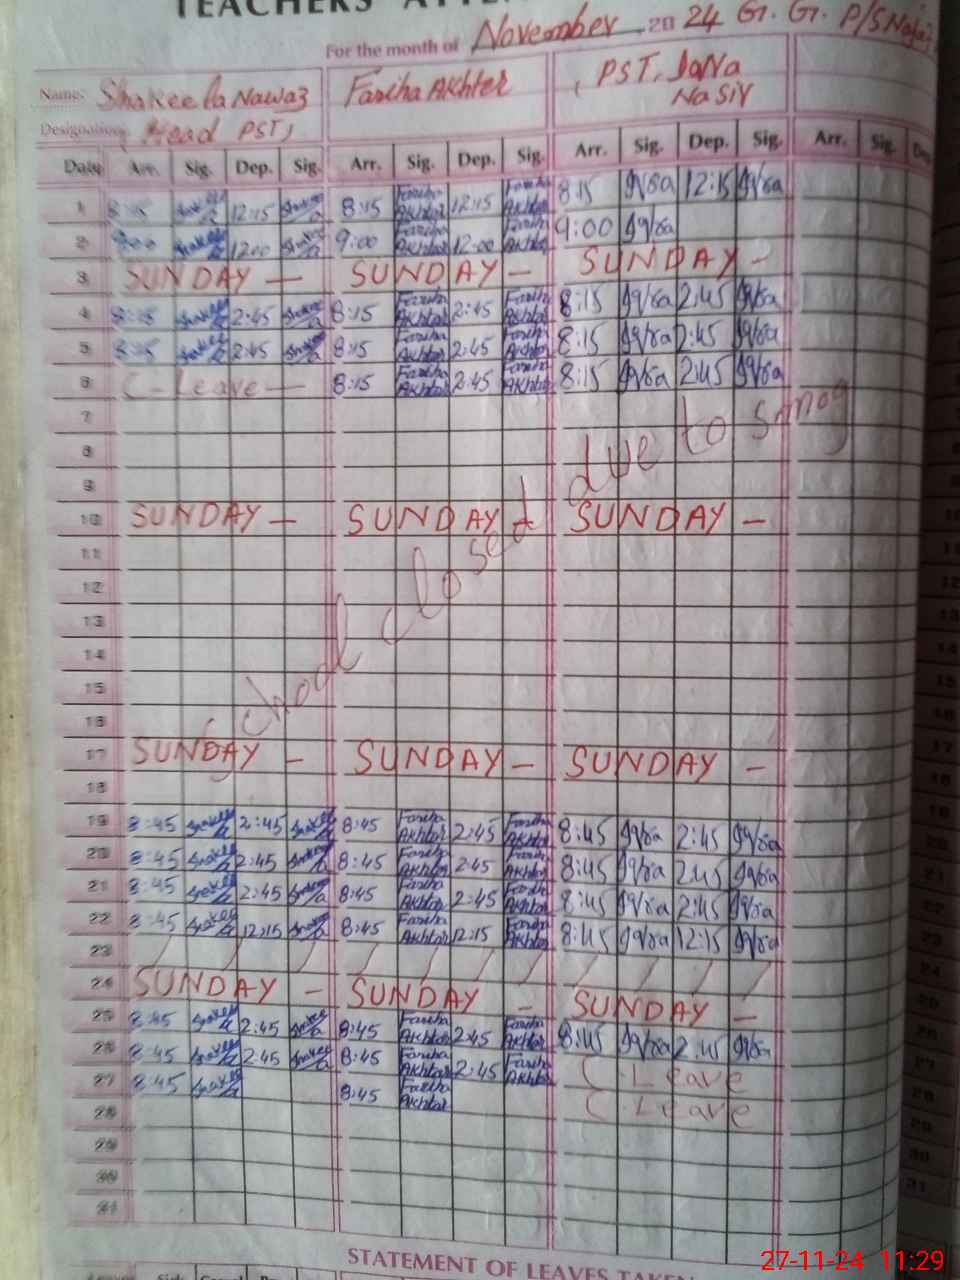 TEACHERS' ATTEN
For the month of November 2024 G. G. P/S
Name: Shakeela Nawaz Fariha Akhter PST, Nasir
Designation Head PST,
Date Arr. Sig. Dep. Sig. Arr. Sig. Dep. Sig. Arr. Sig. Dep. Sig. Arr. Sig. Dep
1 8:15 Shakeela 12:15 Shakeela 8:15 Fariha Akhtar 12:15 Fariha Akhtar 8:15 Iqra 12:15 Iqra
2 9:00 Shakeela 12:00 Shakeela 9:00 Fariha Akhtar 12:00 Fariha Akhtar 9:00 Iqra
3 SUNDAY - SUNDAY - SUNDAY -
4 8:15 Shakeela 2:45 Shakeela 8:15 Fariha Akhtar 2:45 Fariha Akhtar 8:15 Iqra 2:45 Iqra
5 8:15 Shakeela 2:45 Shakeela 8:15 Fariha Akhtar 2:45 Fariha Akhtar 8:15 Iqra 2:45 Iqra
6 C-Leave - 8:15 Fariha Akhtar 2:45 Fariha Akhtar 8:15 Iqra 2:45 Iqra
7
8
9
10 SUNDAY - SUNDAY - SUNDAY -
School closed due to smog
11
12
13
14
15
16
17 SUNDAY - SUNDAY - SUNDAY -
18
19 8:45 Shakeela 2:45 Shakeela 8:45 Fariha Akhtar 2:45 Fariha Akhtar 8:45 Iqra 2:45 Iqra
20 8:45 Shakeela 2:45 Shakeela 8:45 Fariha Akhtar 2:45 Fariha Akhtar 8:45 Iqra 2:45 Iqra
21 8:45 Shakeela 2:45 Shakeela 8:45 Fariha Akhtar 2:45 Fariha Akhtar 8:45 Iqra 2:45 Iqra
22 8:45 Shakeela 12:15 Shakeela 8:45 Fariha Akhtar 12:15 Fariha Akhtar 8:45 Iqra 12:15 Iqra
23 / / / / / / / / / / / /
24 SUNDAY - SUNDAY - SUNDAY -
25 8:45 Shakeela 2:45 Shakeela 8:45 Fariha Akhtar 2:45 Fariha Akhtar 8:45 Iqra 2:45 Iqra
26 8:45 Shakeela 2:45 Shakeela 8:45 Fariha Akhtar 2:45 Fariha Akhtar C. Leave
27 8:45 Shakeela 8:45 Fariha Akhtar C. Leave
28
29
30
31
STATEMENT OF LEAVES TAKEN
27-11-24 11:29